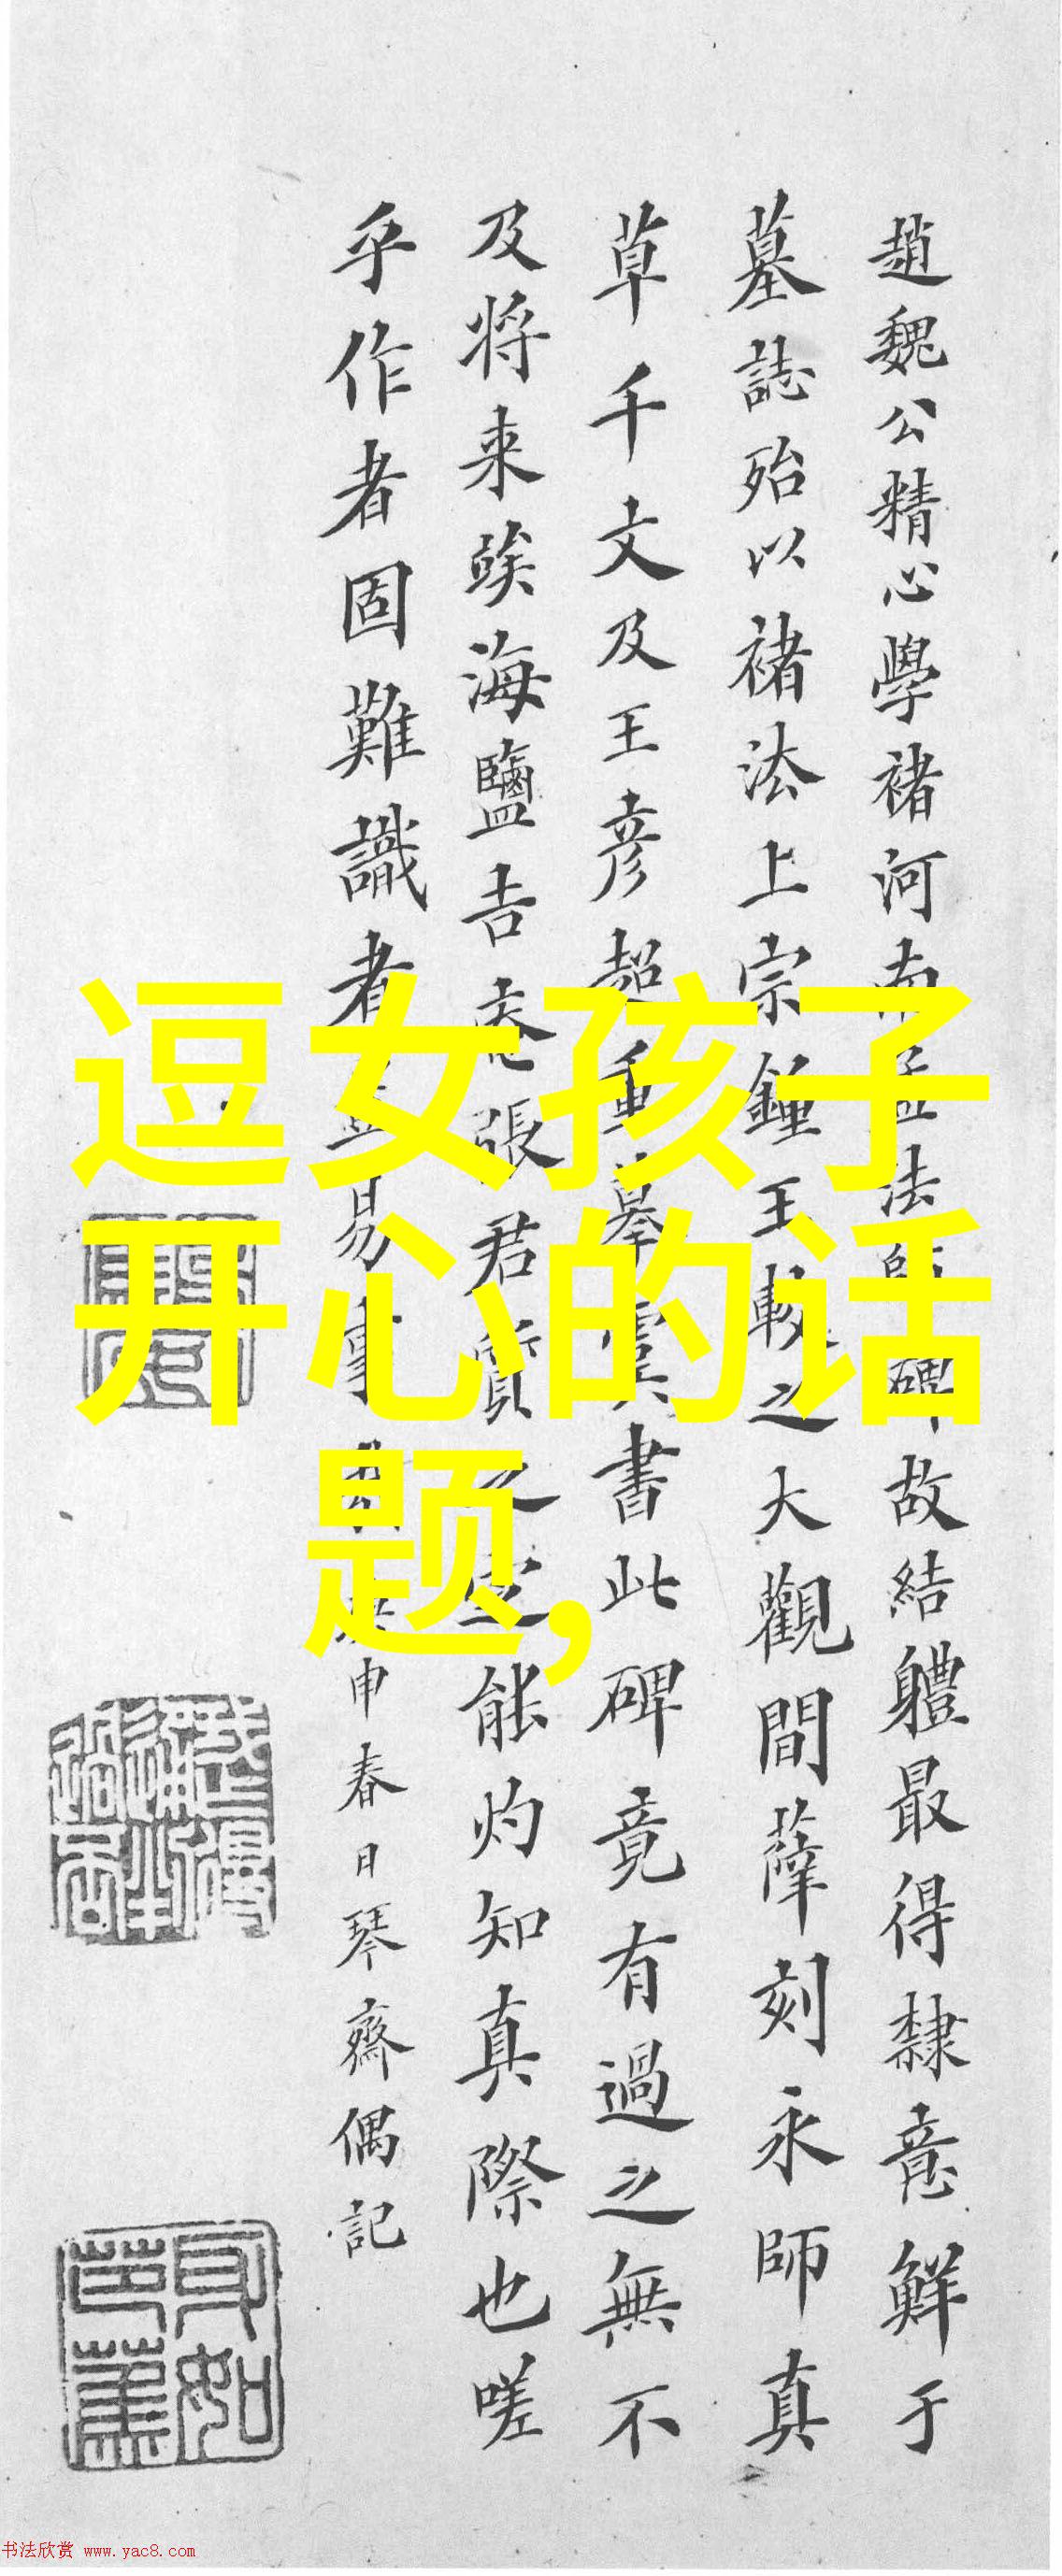 逗女孩子
开心的话
题,
趙魏公精心學褚河南孟法師碑故結體最得隸意鮮于
墓誌殆以褚法上宗鍾王較之大觀間薛刻永師真
草千文及王彥超重摹虞書此碑竟有過之無不
及將来竢海鹽吉老張君質之定能灼知真際也嗟
乎作者固難識者
易事
申春日琴齋偶記
书法欣赏 www.yac8.com